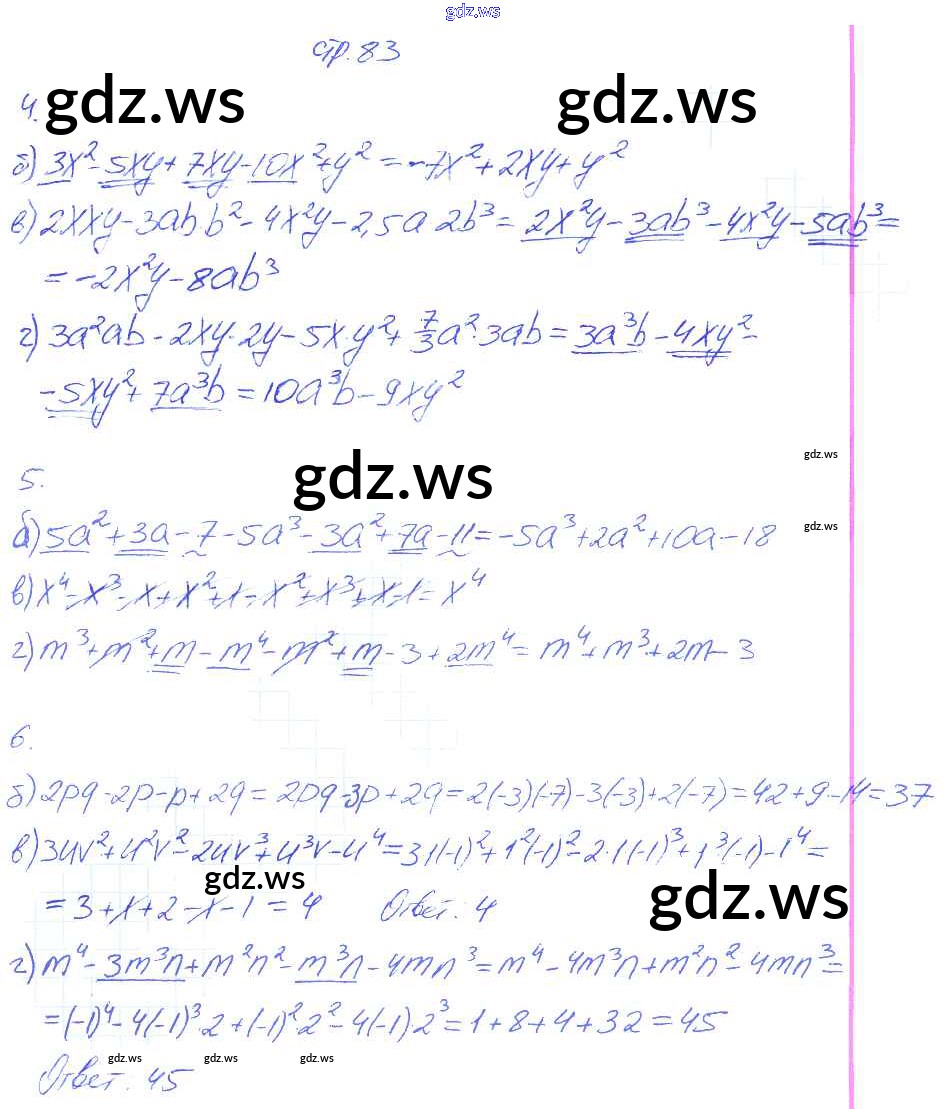 gdz.ws
стр. 83
gdz.ws gdz.ws
4.
б) 3x² - 5xy + 7xy - 10x² + y² = -7x² + 2xy + y²
в) 2xxy - 3ab b² - 4x²y - 2,5a 2b³ = 2x²y - 3ab³ - 4x²y - 5ab³ =
= -2x²y - 8ab³
г) 3a²ab - 2xy·2y - 5x·y² + 7/3 a²·3ab = 3a³b - 4xy² -
- 5xy² + 7a³b = 10a³b - 9xy²
gdz.ws
gdz.ws
5.
б) 5a² + 3a - 7 - 5a³ - 3a² + 7a - 11 = -5a³ + 2a² + 10a - 18
gdz.ws
в) x⁴ - x³ - x + x² + 1 - x² + x³ + x - 1 = x⁴
г) m³ + m² + m - m⁴ - m² + m - 3 + 2m⁴ = m⁴ + m³ + 2m - 3
6.
б) 2pq - 2p - p + 2q = 2pq - 3p + 2q = 2(-3)(-7) - 3(-3) + 2(-7) = 42 + 9 - 14 = 37
в) 3uv² + u²v² - 2uv³ + u³v - u⁴ = 3·1(-1)² + 1²(-1)² - 2·1(-1)³ + 1³(-1) - 1⁴ =
gdz.ws
gdz.ws
= 3 + 1 + 2 - 1 - 1 = 4 Ответ: 4
г) m⁴ - 3m³n + m²n² - m³n - 4mn³ = m⁴ - 4m³n + m²n² - 4mn³ =
= (-1)⁴ - 4(-1)³·2 + (-1)²·2² - 4(-1)2³ = 1 + 8 + 4 + 32 = 45
gdz.ws gdz.ws gdz.ws
Ответ: 45